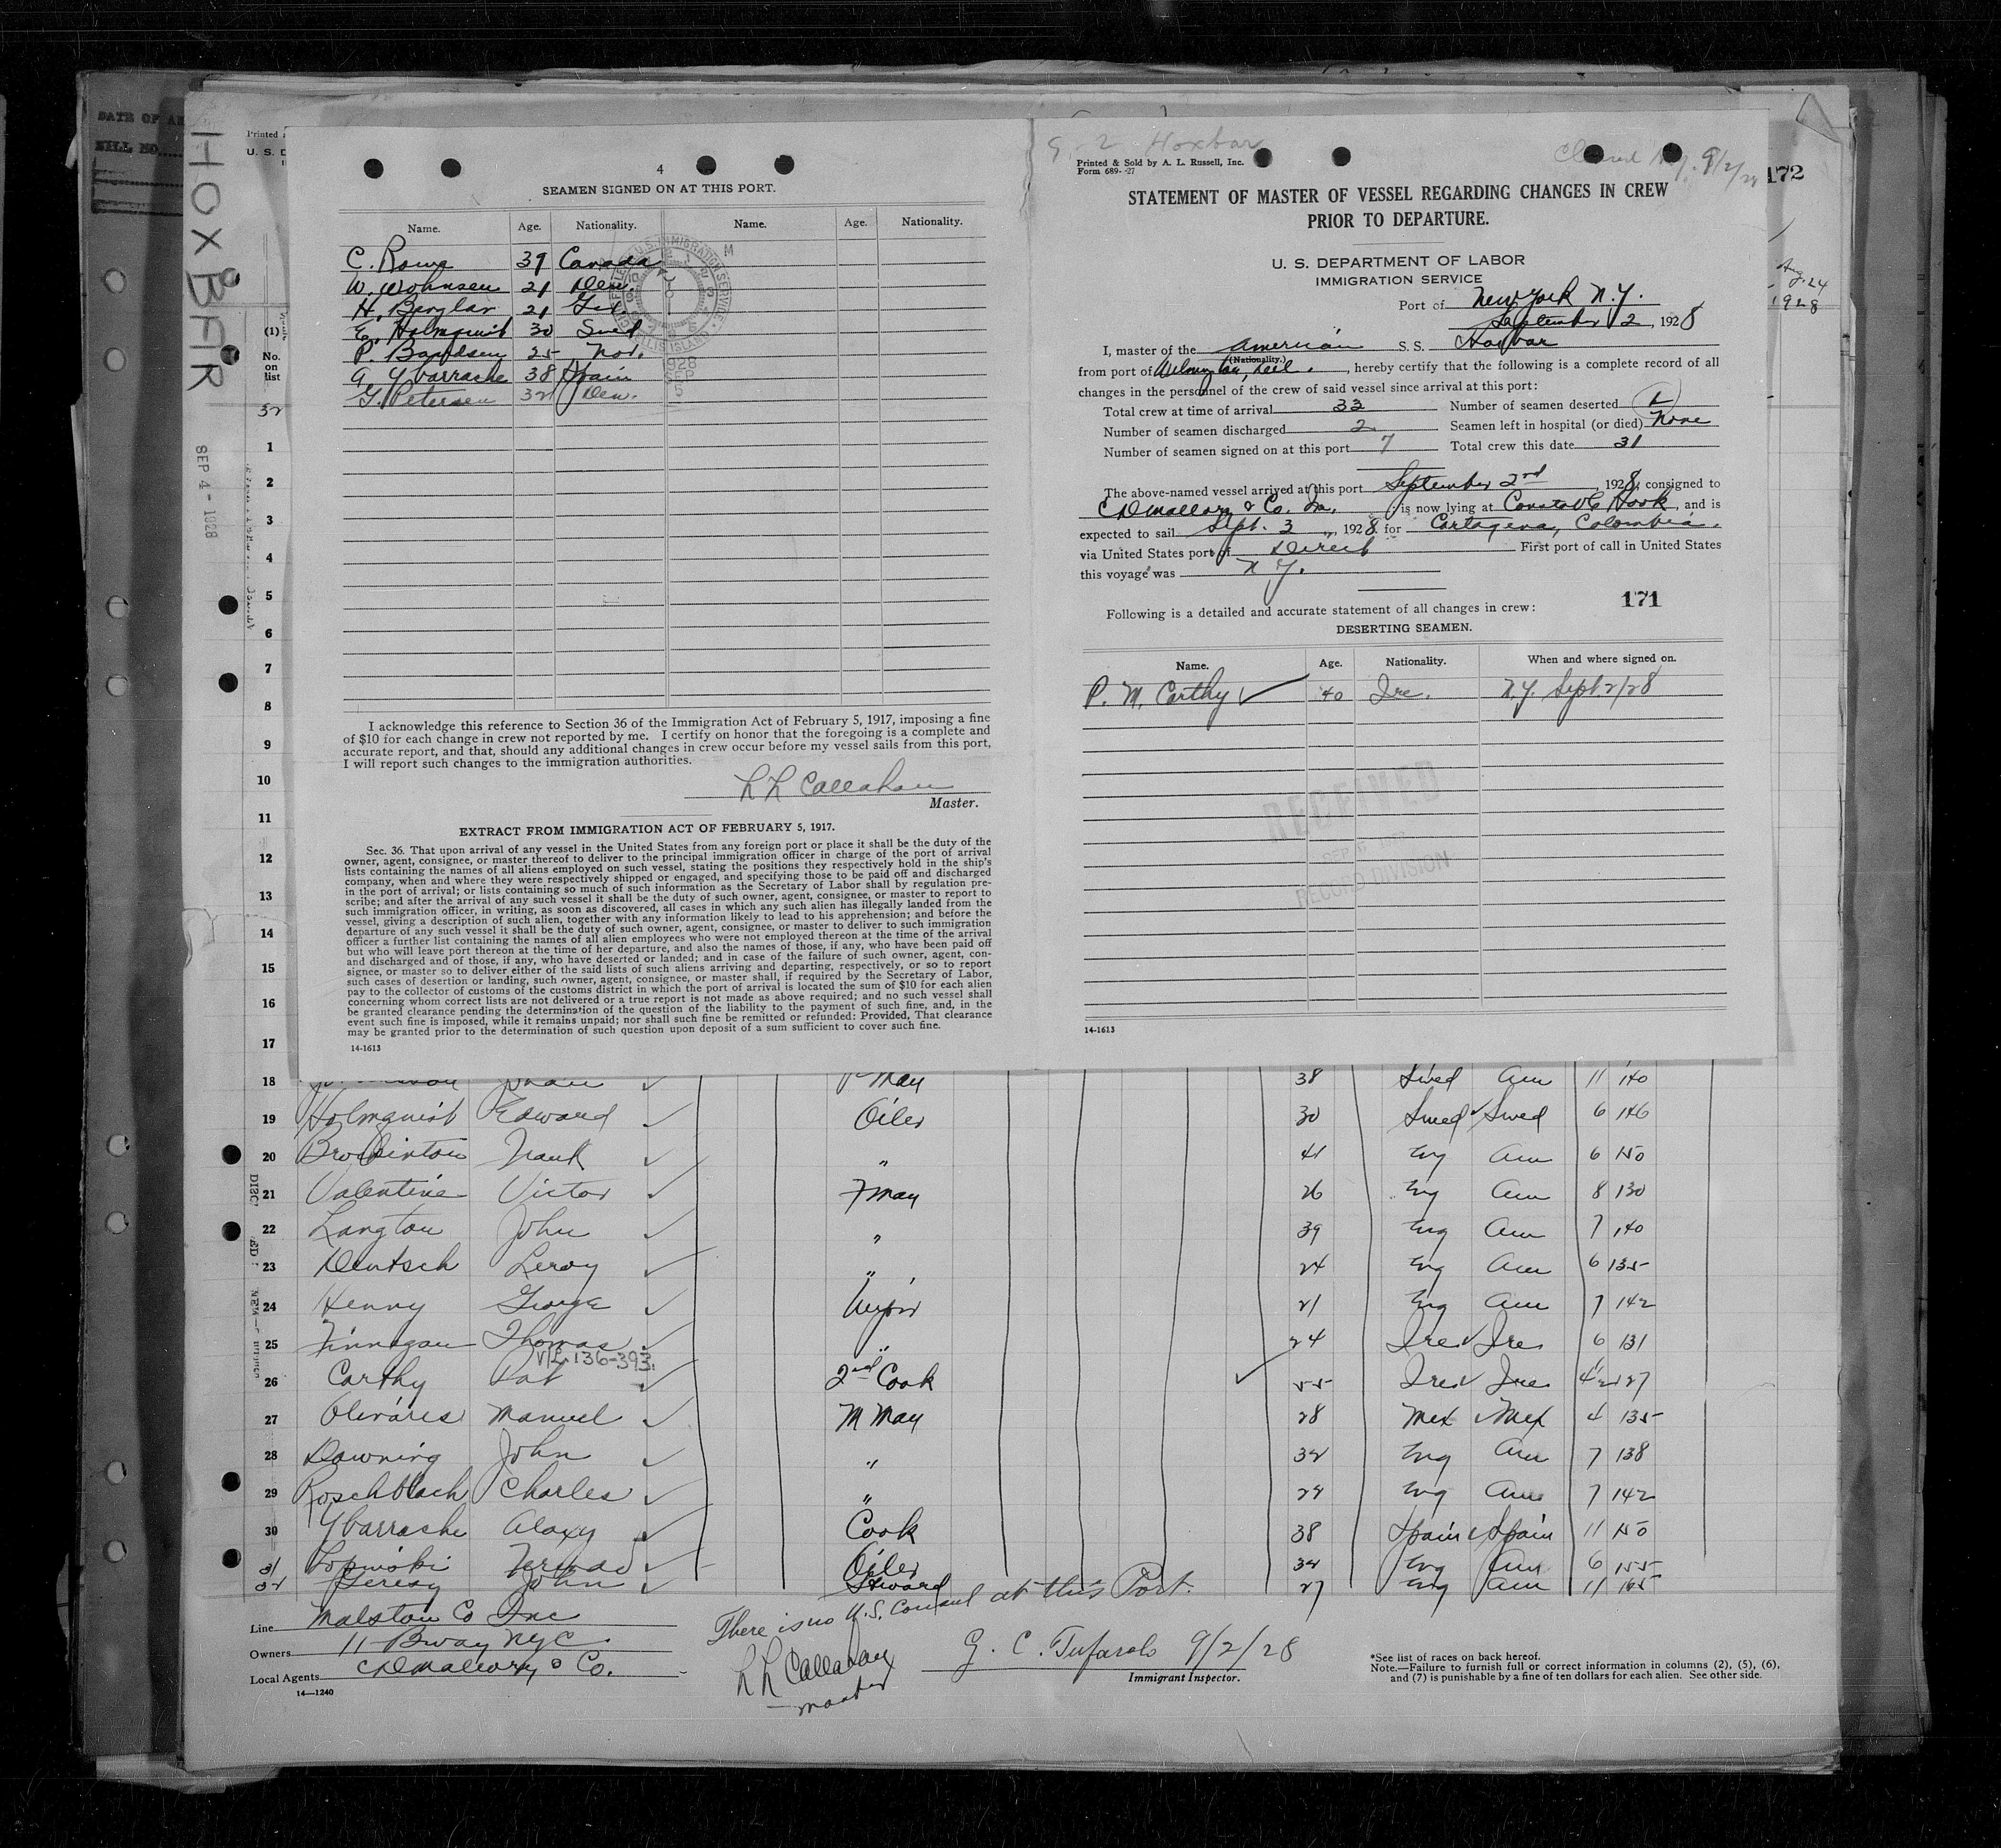 DATE OF
BILL NO.
HOXBAR
SEP 4 - 1928
Printed
U. S. D
4
SEAMEN SIGNED ON AT THIS PORT.
Name. Age. Nationality. Name. Age. Nationality.
C. Rowe 39 Canada
W. Wohnsen 21 Den.
H. Berglar 21 Ger.
E. Holmquist 30 Swed
P. 25 Nor.
A Ybarrache 38 Spain
G. Petersen 32 Den.
(1)
No.
on
list
32
1
2
3
4
5
6
7
8
9
10
11
12
13
14
15
16
17
I acknowledge this reference to Section 36 of the Immigration Act of February 5, 1917, imposing a fine
of $10 for each change in crew not reported by me. I certify on honor that the foregoing is a complete and
accurate report, and that, should any additional changes in crew occur before my vessel sails from this port,
I will report such changes to the immigration authorities.
Callahan
Master.
EXTRACT FROM IMMIGRATION ACT OF FEBRUARY 5, 1917.
Sec. 36. That upon arrival of any vessel in the United States from any foreign port or place it shall be the duty of the
owner, agent, consignee, or master thereof to deliver to the principal immigration officer in charge of the port of arrival
lists containing the names of all aliens employed on such vessel, stating the positions they respectively hold in the ship's
company, when and where they were respectively shipped or engaged, and specifying those to be paid off and discharged
in the port of arrival; or lists containing so much of such information as the Secretary of Labor shall by regulation pre-
scribe; and after the arrival of any such vessel it shall be the duty of such owner, agent, consignee, or master to report to
such immigration officer, in writing, as soon as discovered, all cases in which any such alien has illegally landed from the
vessel, giving a description of such alien, together with any information likely to lead to his apprehension; and before the
departure of any such vessel it shall be the duty of such owner, agent, consignee, or master to deliver to such immigration
officer a further list containing the names of all alien employees who were not employed thereon at the time of the arrival
but who will leave port thereon at the time of her departure, and also the names of those, if any, who have been paid off
and discharged and of those, if any, who have deserted or landed; and in case of the failure of such owner, agent, con-
signee, or master so to deliver either of the said lists of such aliens arriving and departing, respectively, or so to report
such cases of desertion or landing, such owner, agent, consignee, or master shall, if required by the Secretary of Labor,
pay to the collector of customs of the customs district in which the port of arrival is located the sum of $10 for each alien
concerning whom correct lists are not delivered or a true report is not made as above required; and no such vessel shall
be granted clearance pending the determination of the question of the liability to the payment of such fine, and, in the
event such fine is imposed, while it remains unpaid; nor shall such fine be remitted or refunded: Provided, That clearance
may be granted prior to the determination of such question upon deposit of a sum sufficient to cover such fine.
14-1613
9-2 Hoxbar
Cleared N.Y. 9/2/28
Printed & Sold by A. L. Russell, Inc.
Form 689- -27
172
STATEMENT OF MASTER OF VESSEL REGARDING CHANGES IN CREW
PRIOR TO DEPARTURE.
U. S. DEPARTMENT OF LABOR
IMMIGRATION SERVICE
Port of New York N.Y.
September 2, 1928
Aug 24
1928
I, master of the American S. S. Hoxbar
(Nationality.)
from port of Wilmington, Del., hereby certify that the following is a complete record of all
changes in the personnel of the crew of said vessel since arrival at this port:
Total crew at time of arrival 32 Number of seamen deserted 1
Number of seamen discharged 2 Seamen left in hospital (or died) None
Number of seamen signed on at this port 7 Total crew this date 31
The above-named vessel arrived at this port September 2nd, 1928, consigned to
C D Mallory & Co. In. is now lying at Constable Hook, and is
expected to sail Sept. 3, 1928 for Cartagena, Colombia.
via United States port of Direct First port of call in United States
this voyage was N Y.
171
Following is a detailed and accurate statement of all changes in crew:
DESERTING SEAMEN.
Name. Age. Nationality. When and where signed on.
P. M. Carthy 40 Ire. N.Y. Sept 2/28
RECEIVED
RECORD DIVISION
14-1613
18 38 Swed Am 11 140
19 Holmquist Edward Oiler 30 Swed Swed 6 146
20 Brockinton Frank " 41 Eng Am 6 150
21 Valentine Victor F man 26 Eng Am 8 130
22 Langton John " 39 Eng Am 7 140
23 Deutsch Leroy " 24 Eng Am 6 135
24 Henny George Wiper 21 Eng Am 7 142
25 Finnegan Thomas " 24 Ire Ire 6 131
V/L 136-393.
26 Carthy Pat 2nd Cook 55 Ire Ire 4 127
27 Olivares Manuel M Man 28 Mex Mex 4 135
28 Downing John " 32 Eng Am 7 138
29 Roschblach Charles " 29 Eng Am 7 142
30 Ybarrache Aloxy Cook 38 Spain Spain 11 150
31 Oiler 34 Eng Am 6 155
32 John Steward 27 Eng Am 11 165
There is no U.S. Consul at this Port.
L L Callahan
master
Line Malston Co Inc
Owners 11 Bway NYC.
Local Agents C D Mallory & Co.
14—1240
G. C. Tufarolo 9/2/28
Immigrant Inspector.
*See list of races on back hereof.
Note.—Failure to furnish full or correct information in columns (2), (5), (6),
and (7) is punishable by a fine of ten dollars for each alien. See other side.